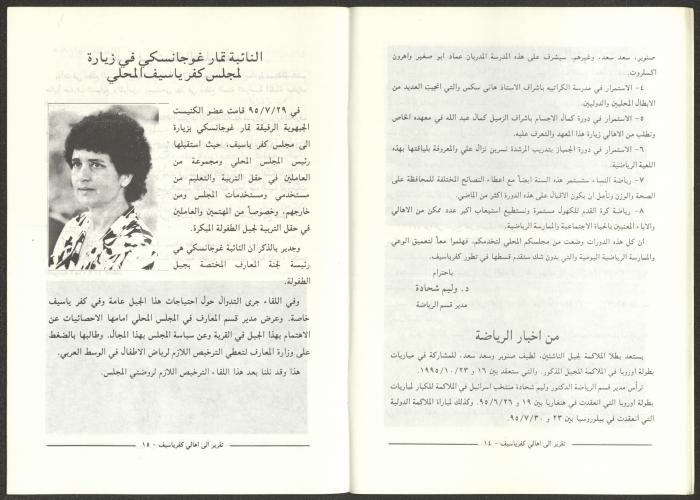 صنوبر، سعد سعد، وغيرهم. سيشرف على هذه المدرسة المدربان عماد ابو صغير واهرون
اكسلروت.
٤- الاستمرار في مدرسة الكراتيه باشراف الاستاذ هاني سكس والتي انجبت العديد من
الابطال المحليين والدوليين.
٥- الاستمرار في دورة كمال الاجسام باشراف الزميل كمال عبد الله في معهده الخاص
ونطلب من الاهالي زيارة هذا المعهد والتعرف عليه.
٦- الاستمرار في دورة الجمباز بتدريب المرشدة نسرين نزال علي والمعروفة بلياقتها بهذه
اللعبة الرياضية.
٧- رياضة النساء ستستمر هذه السنة ايضاً مع اعطاء النصائح المختلفة للمحافظة على
الصحة والوزن ونأمل ان يكون الاقبال على هذه الدورة اكثر من الماضي.
٨- رياضة كرة القدم للكهول مستمرة ونستطيع استيعاب اكبر عدد ممكن من الاهالي
والاباء المعنيين بالحياة الاجتماعية والممارسة الرياضية.
ان كل هذه الدورات وضعت من مجلسكم المحلي لتخدمكم. فهلموا معاً لتعميق الوعي
والممارسة الرياضية اليومية والتي بدون شك ستقدم قسطها في تطور كفرياسيف.
باحترام
د. وليم شحادة
مدير قسم الرياضة
من اخبار الرياضة
يستعد بطلا الملاكمة لجيل الناشئين، لطيف صنوبر وسعد سعد، للمشاركة في مباريات
بطولة اوروبا في الملاكمة للجيل المذكور. والتي ستعقد بين ١٦ و ١٩٩٥/١٠/٢٣.
ترأس مدير قسم الرياضة الدكتور وليم شحادة منتخب اسرائيل في الملاكمة للكبار لمباريات
بطولة اوروبا التي انعقدت في هنغاريا بين ١٩ و ٩٥/٦/٢٦. وكذلك لمباراة الملاكمة الدولية
التي انعقدت في بيلوروسيا بين ٢٣ و ٩٥/٧/٣٠.
تقرير الى اهالي كفرياسيف - ١٤
النائبة تمار غوجانسكي في زيارة
لمجلس كفر ياسيف المحلي
في ٩٥/٧/٢٩ قامت عضو الكنيست
الجبهوية الرفيقة تمار غوجانسكي بزيارة
الى مجلس كفر ياسيف، حيث استقبلها
رئيس المجلس المحلي ومجموعة من
العاملين في حقل التربية والتعليم من
مستخدمي ومستخدمات المجلس ومن
خارجهم، وخصوصاً من المهتمين والعاملين
في حقل التربية لجيل الطفولة المبكرة.
وجدير بالذكر ان النائبة غوجانسكي هي
رئيسة لجنة المعارف المختصة بجيل
الطفولة.
وفي اللقاء جرى التداول حول احتياجات هذا الجيل عامة وفي كفر ياسيف
خاصة. وعرض مدير قسم المعارف في المجلس المحلي امامها الاحصائيات عن
الاهتمام بهذا الجيل في القرية وعن سياسة المجلس بهذا المجال. وطالبها بالضغط
على وزارة المعارف لتعطي الترخيص اللازم لرياض الاطفال في الوسط العربي.
هذا وقد نلنا بعد هذا اللقاء الترخيص اللازم لروضتي المجلس.
تقرير الى اهالي كفرياسيف - ١٥